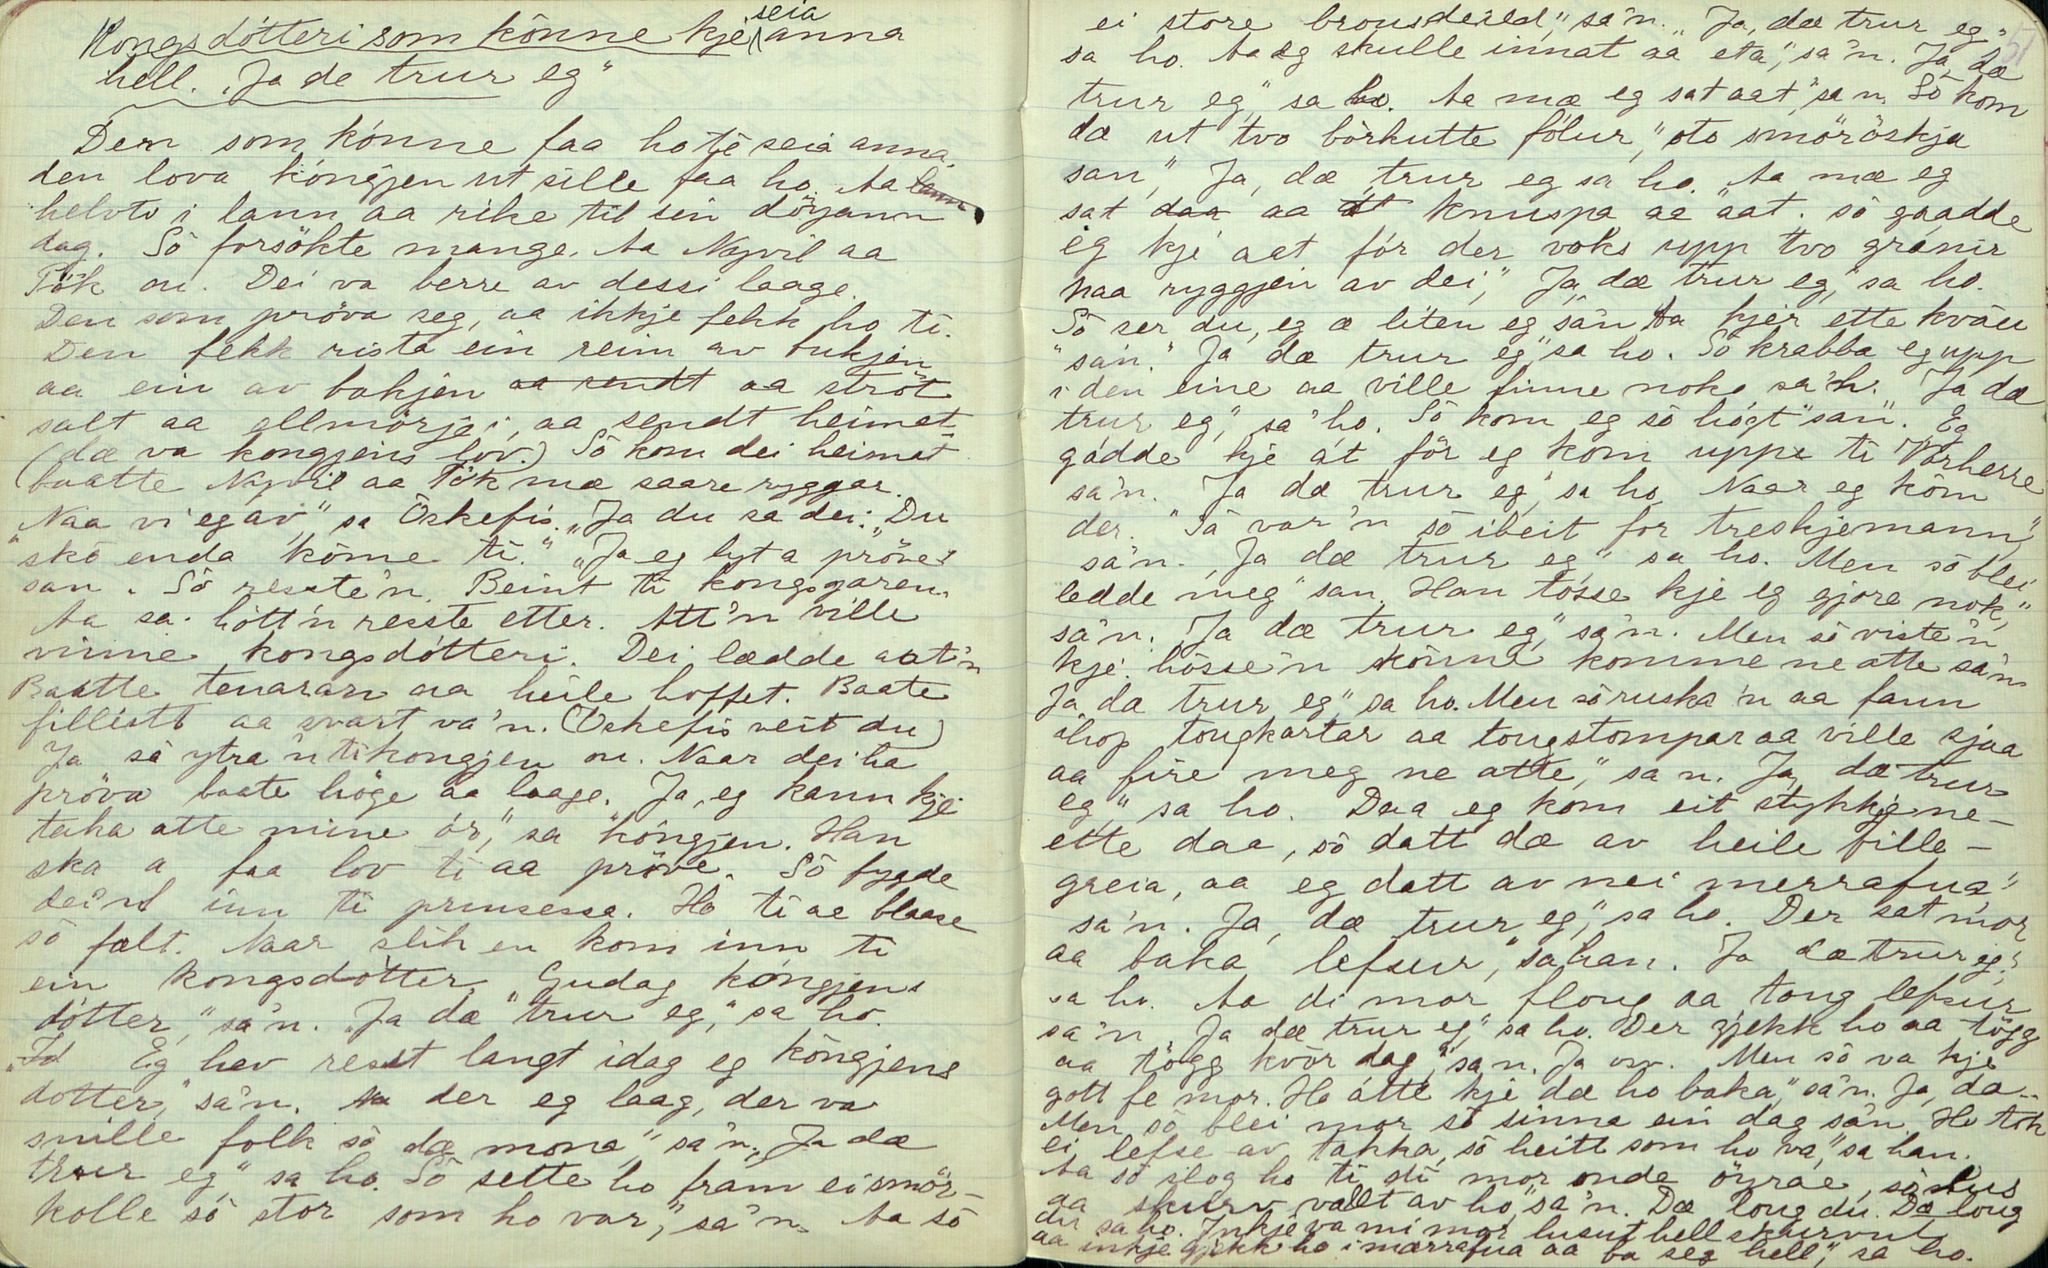 Kongsdótteri som kónne kje seia anna
hell. „Ja de trur eg"
Den som kónne faa ho te seia anna,
den lova kóngjen ut sille faa ho. Aa
helvto i lann aa rike til sin döyann
dag. Sô forsökte mange. Aa Nysvil aa
Tôk au. Dei va berre av dessi laage.
Den som pröva seg, aa ikkje fekk ho ti.
Den fekk rista ein reim av bukjen
aa ein av bakjen aa sendt aa ströt
salt aa ellmörje i, aa sendt heimat
(dæ va kongjens lov.) Sô kom dei heimat
baatte Nysvil aa Tôk mæ saare ryggar.
„Naa vi eg av," sa Öskefis. „Ja du sa dei: „Du
skô enda kôme ti." „Ja eg lyt a pröve"
san. Sô resste'n. Beint ti kongsgaren.
Aa sa hôtt'n resste etter. Att'n ville
vinne kongsdótteri. Dei lædde aat'n
Baatte tenaran aa heile hoffet. Baate
fillistt aa svart va'n. (Oskefis veit du)
Ja sô ytra'n ti kongjen au. Naar dei ha
pröva baate höge aa laage. Ja, eg kann kje
taka atte mine ór," sa kóngjen. Han
ska a faa lov ti aa pröve. Sô fygde
dei'n inn ti prinsessa. Ho ti aa blaase
sô fælt. Naar slik en kom inn ti
ein kongsdótter. Gudag kóngjens
dótter," sa'n. „Ja dæ trur eg," sa ho.
„Eg hev resst langt idag eg kôngjens
dotter," sa'n. Aa der eg laag, der va
snille folk sô dæ mona," sa'n. Ja dæ
trur eg" sa ho. Sô sette ho fram ei smör-
kolle sô stor som ho var," sa'n. Aa sô
ei store brousdeild," sa'n. „Ja, dæ trur eg"
sa ho. Aa eg skulle innat aa eta," sa'n. Ja dæ
trur eg," sa ho. Aa mæ eg sat aat," sa n. Sô kom
dæ ut tvo bôrkutte fólur, oto smöröskja
san," Ja, dæ trur eg sa ho. Aa mæ eg
sat daa aa knuspa aa aat. sô gaadde
eg kje aat fór der voks upp tvo granir
paa ryggjen av dei," Ja, dæ trur eg," sa ho.
Sô ser du, eg æ liten eg sa'n aa kjer ette kvau
"sa'n." Ja dæ trur eg" sa ho. Sô krabba eg upp
i den eine aa ville finne noko sa'n. Ja dæ
trur eg," sa ho. Sô kom eg sô högt" san". Eg
gádde kje át för eg kom uppe ti Vorherre
sa'n. Ja dæ trur eg," sa ho. Naar eg kôm
der. "Sâ var'n sô ibeit for treskjemann,"
sa'n. Ja dæ trur eg," sa ho. Men sô blei
ledde meg" san, Han tósse kje eg gjore nok,"
sa'n. Ja dæ trur eg," sa'n. Men sô viste'n
kje hósse'n kónne komme ne atte sa'n
Ja dæ trur eg," sa ho. Men sô ruska'n aa fann
ihop tougkartar aa tougstompar aa ville sjaa
aa fire meg ne atte," sa n. Ja, dæ trur
eg," sa ho. Daa eg kom eit stykkje ne-
ette daa, sô datt dæ av heile fille-
greia, aa eg datt av nei merrafua,"
sa'n. Ja, dæ trur eg," sa ho. Der sat mor
aa baka lefsur," sa han. Ja dæ trur eg,"
sa ho. Aa di mor floug aa toug lefsur
sa'n Ja dæ trur eg," sa ho. Der gjekk ho aa tögg
aa tögg kvör dag," sa n. Ja ow. Men sô va kje
gott fe mor. Ho átte kje dæ ho baka," sa'n. Ja, dæ..
Men sô blei mor sô sinna ein dag sa'n. Ho tok
ei lefse av takka, sô heitt som ho va," sa han.
Aa sô slog ho ti di mor onde öyrae, sô lus
aa skurv vallt av ho," sa'n. Dæ loug du. Dæ loug
du sa ho. Inkje va mi mor lusut hell skurvut
aa inkje gjekk ho i mærrafua aa ba seg hell," sa ho.